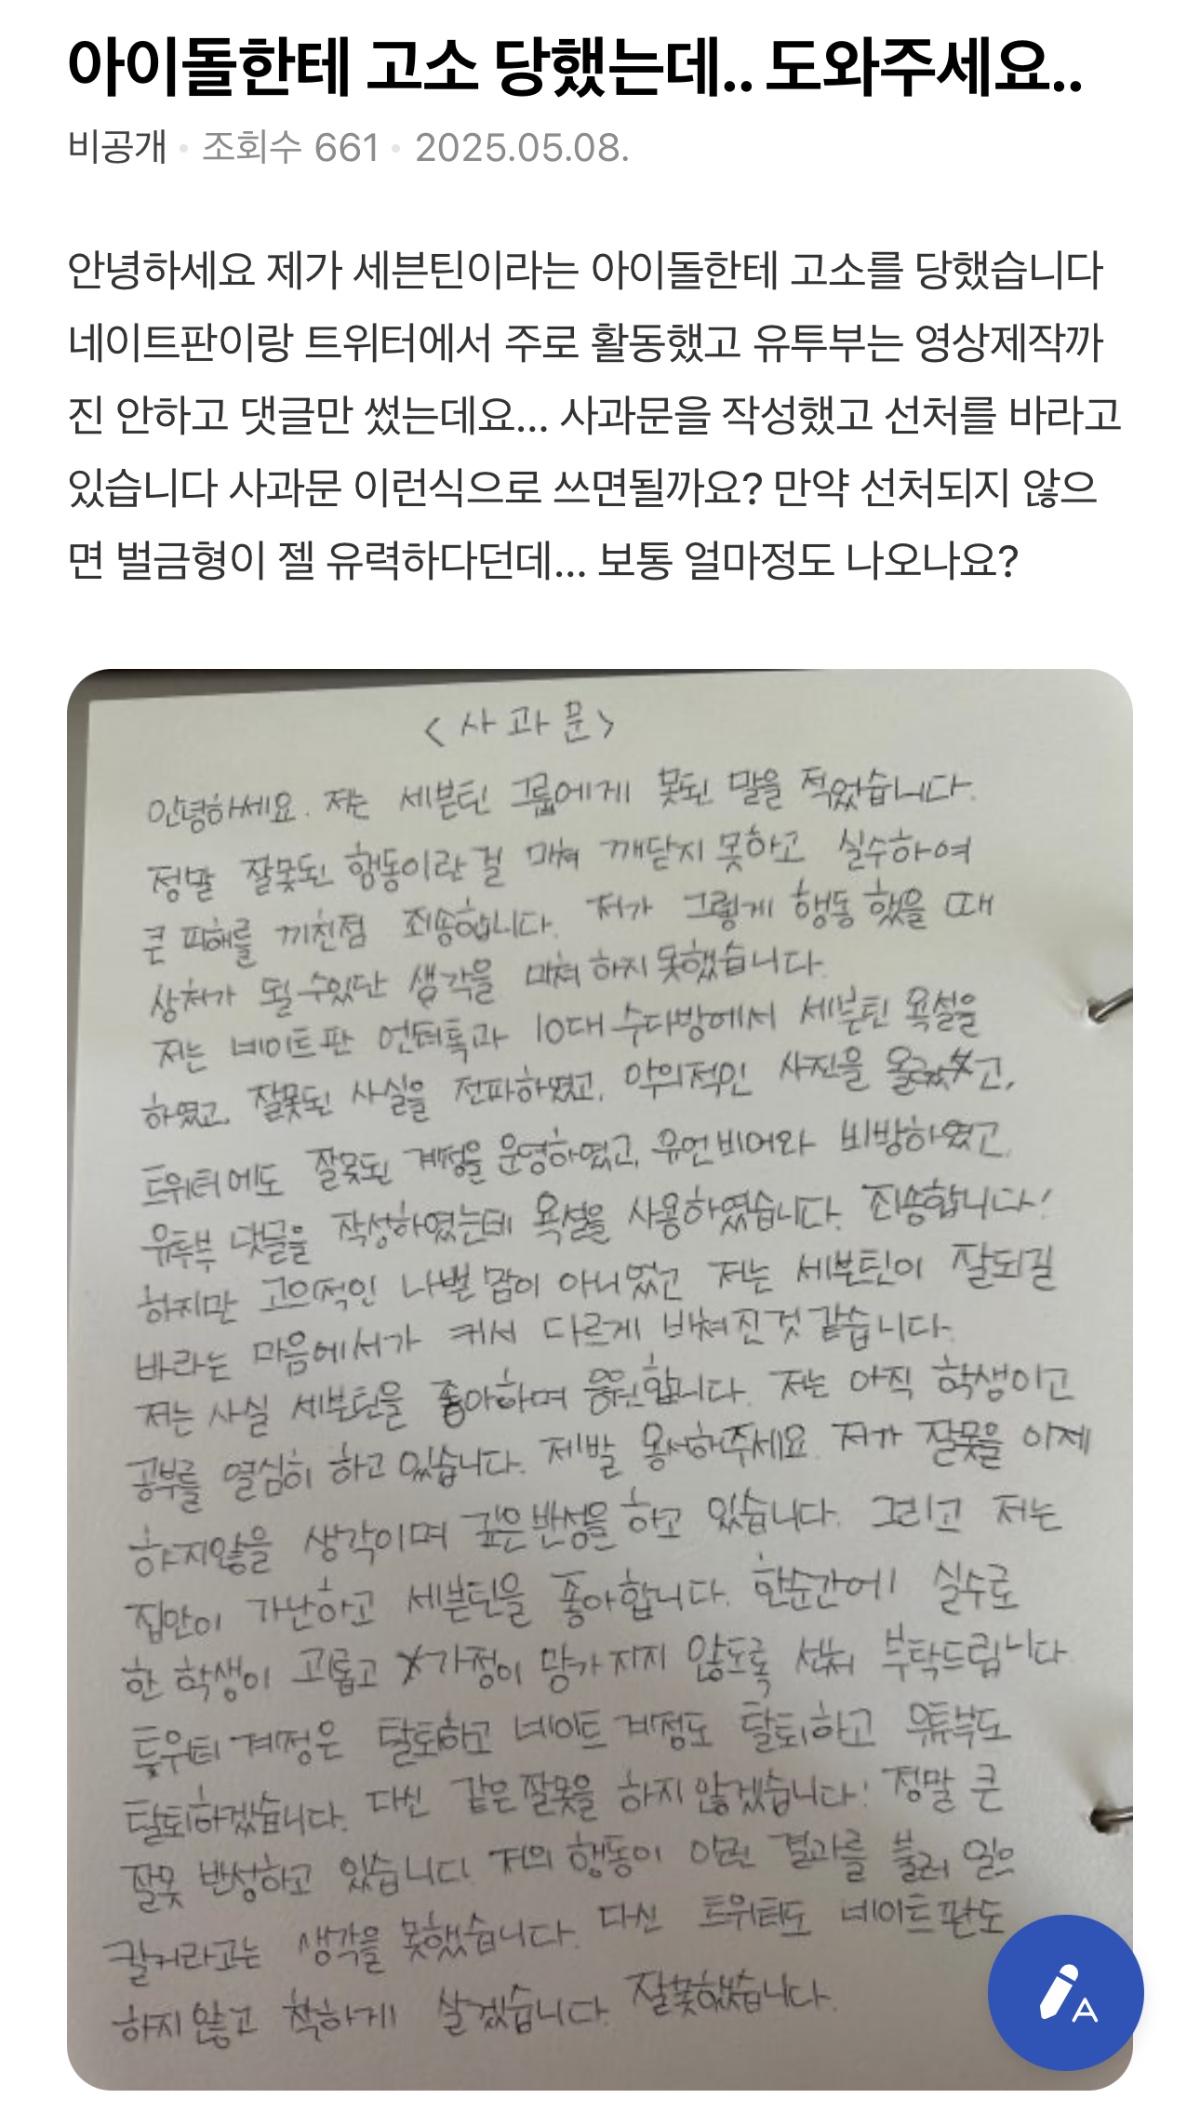 아이돌한테 고소 당했는데.. 도와주세요..
비공개 • 조회수 661 • 2025.05.08.
안녕하세요 제가 세븐틴이라는 아이돌한테 고소를 당했습니다
네이트판이랑 트위터에서 주로 활동했고 유투부는 영상제작까
진 안하고 댓글만 썼는데요... 사과문을 작성했고 선처를 바라고
있습니다 사과문 이런식으로 쓰면될까요? 만약 선처되지 않으
면 벌금형이 젤 유력하다던데... 보통 얼마정도 나오나요?
<사과문>
안녕하세요. 저는 세븐틴 그룹에게 못된 말을 적었습니다.
정말 잘못된 행동이란 걸 마쳐 깨닫지 못하고 실수하여
큰 피해를 끼친점 죄송합니다. 저가 그렇게 행동 했을 때
상처가 될 수있단 생각을 마쳐 하지 못했습니다.
저는 네이트판 엔터톡과 10대 수다방에서 세븐틴 욕설을
하였고, 잘못된 사실을 전파하였고, 악의적인 사진을 올렸고,
트위터에도 잘못된 계정을 운영하였고, 유언비어와 비방하였고,
유투부 댓글을 작성하였는데 욕설을 사용하였습니다. 죄송합니다!
하지만 고의적인 나쁜 맘이 아니었고 저는 세븐틴이 잘되길
바라는 마음에서가 커서 다르게 비쳐진것 같습니다.
저는 사실 세븐틴을 좋아하며 응원합니다. 저는 아직 학생이고
공부를 열심히 하고 있습니다. 제발 용서해주세요. 저가 잘못을 이제
하지않을 생각이며 깊은 반성을 하고 있습니다. 그리고 저는
집안이 가난하고 세븐틴을 좋아합니다. 한순간에 실수로
한 학생이 괴롭고 가정이 망가지지 않도록 선처 부탁드립니다
트위터 계정은 탈퇴하고 네이트 계정도 탈퇴하고 유튜부도
탈퇴하겠습니다. 다신 같은 잘못을 하지 않겠습니다! 정말 큰
잘못 반성하고 있습니다 저의 행동이 이런 결과를 불러 일으
킬거라고는 생각을 못했습니다. 다신 트위터도 네이트판도
하지않고 착하게 살겠습니다. 잘못했습니다.